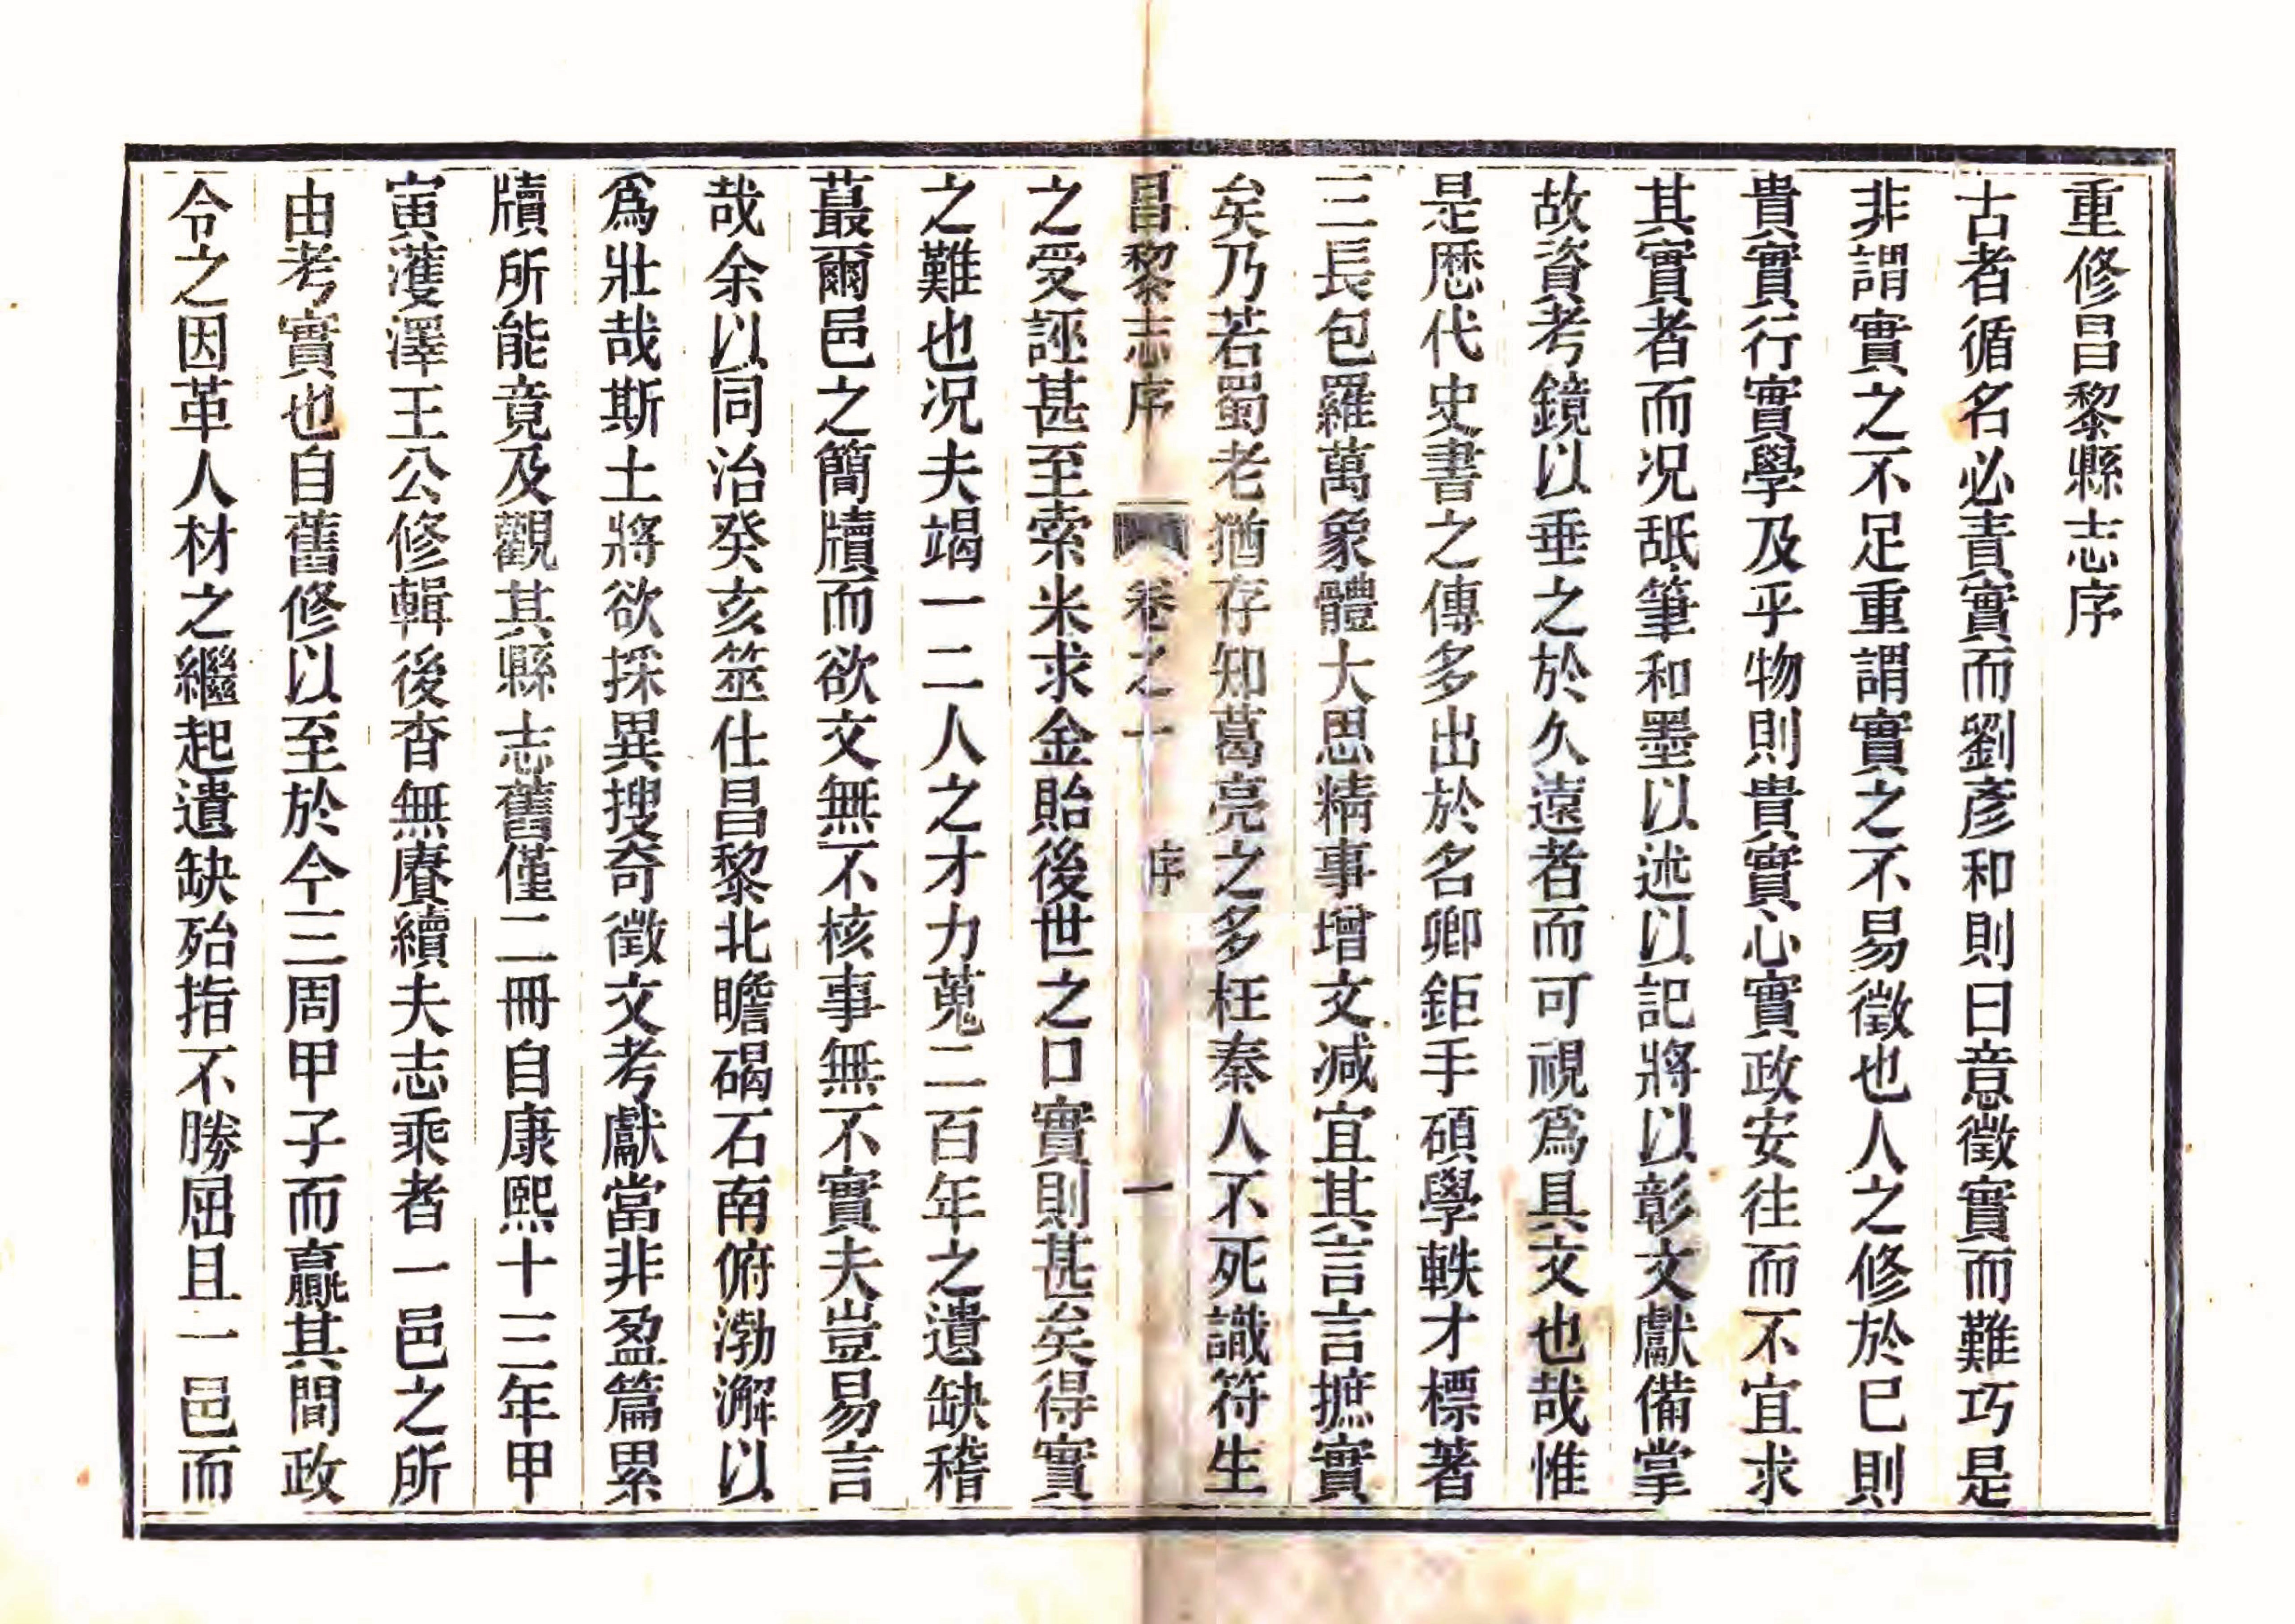 重修昌黎縣志序
古者循名必責實而劉彥和則曰意徵實而難巧是
非謂實之不足重謂實之不易徵也人之修於巳則
貴實行實學及乎物則貴實心實政安往而不宜求
其實者而况舐筆和墨以述以記將以彰文獻備掌
故資考鏡以垂之於久遠者而可視爲具文也哉惟
是歴代史書之傳多出於名卿鉅手碩學軼才標著
三長包羅萬象體大思精事增文减宜其言言摭實
矣乃若蜀老猶存知葛亮之多枉秦人不死識符生
昌黎志序 卷之十 序 一
之受誣甚至索米求金貽後世之口實則甚矣得實
之難也况夫竭一二人之才力蒐二百年之遺缺稽
蕞爾邑之簡牘而欲文無不核事無不實夫豈易言
哉余以同治癸亥筮仕昌黎北瞻碣石南俯渤澥以
爲壯哉斯土將欲採異搜奇徵文考獻當非盈篇累
牘所能竟及觀其縣志舊僅二冊自康熙十三年甲
寅濩澤王公修輯後杳無賡續夫志乘者一邑之所
由考實也自舊修以至於今三周甲子而贏其間政
令之因革人材之繼起遺缺殆指不勝屈且一邑而